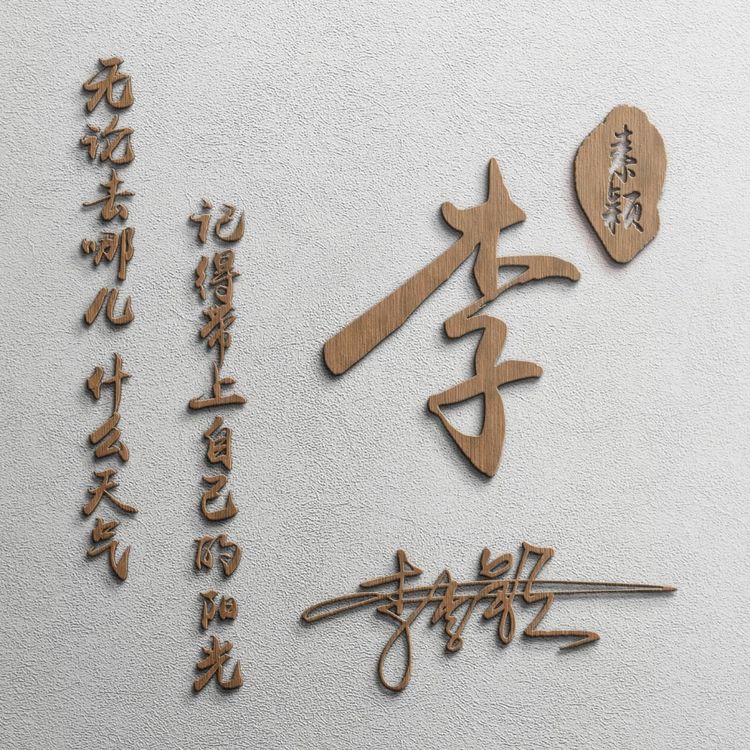 无论去哪儿 什么天气
记得带上自己的阳光
李
素颖
李素颖